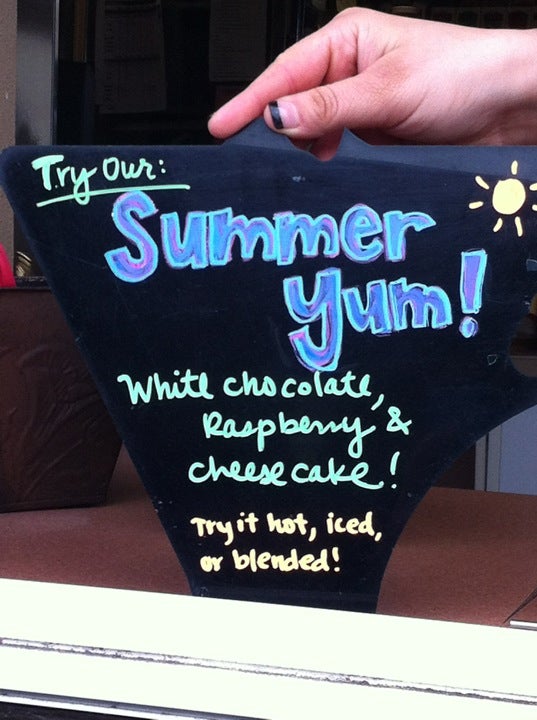 Try Our:
Summer
Yum!
White chocolate,
Raspberry &
cheesecake!
Try it hot, iced,
or blended!